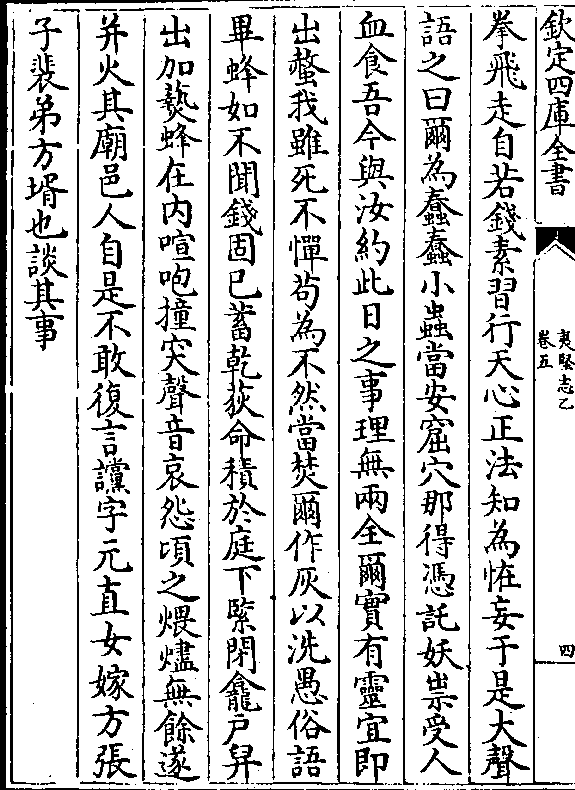 欽定四庫全書
夷堅志乙
卷五
四
拳飛走自若錢素習行天心正法知為恠妄于是大聲
語之曰爾為蠢蠢小蟲當安窟穴那得憑託妖祟受人
血食吾今與汝約此日之事理無兩全爾實有靈宜即
出螫我雖死不憚茍為不然當焚爾作灰以洗愚俗語
畢蜂如不聞錢固已蓄乾荻命積於庭下緊閉龕户舁
出加爇蜂在内喧咆撞突聲音哀怨頃之煨燼無餘遂
并火其廟邑人自是不敢復言讜字元直女嫁方張
子裴弟方壻也談其事